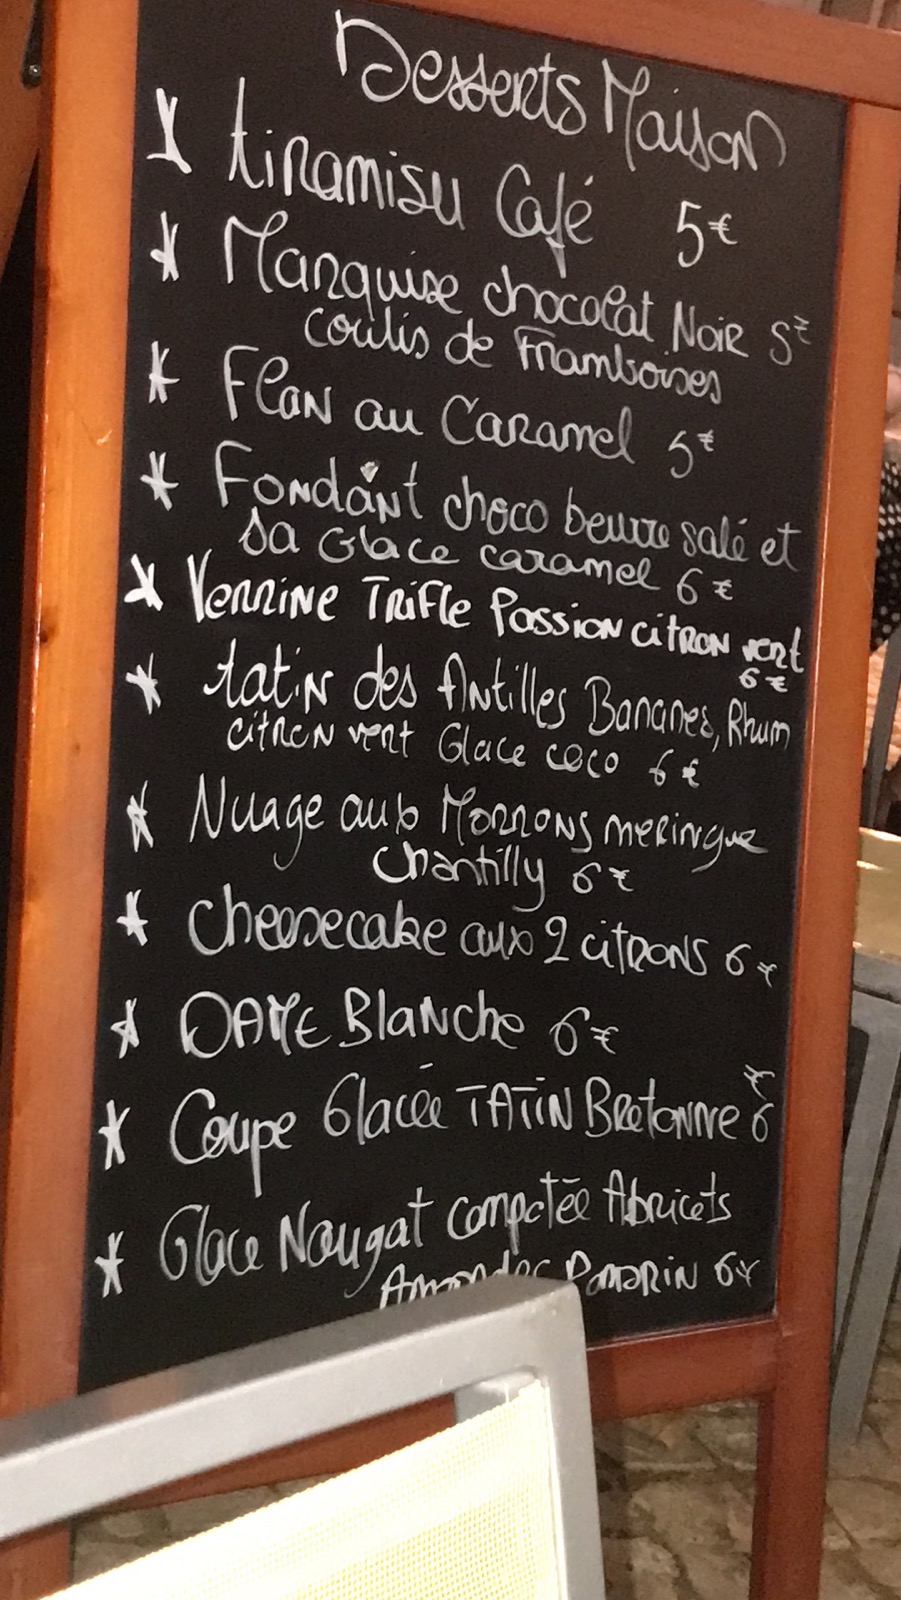 Desserts Maison
* tiramisu Café 5€
* Marquise chocolat Noir 5€
coulis de Framboises
* Flan au Caramel 5€
* Fondant choco beurre salé et
sa Glace caramel 6€
* Verrine Trifle Passion citron vert
6€
* tatin des Antilles Bananes, Rhum
citron vert Glace coco 6€
* Nuage aux Marrons meringue
Chantilly 6€
* Cheesecake aux 2 citrons 6€
* DAME Blanche 6€
* Coupe Glacée TATIN Bretonne 6€
* Glace Nougat compotée Abricots
Amandes Romarin 6€